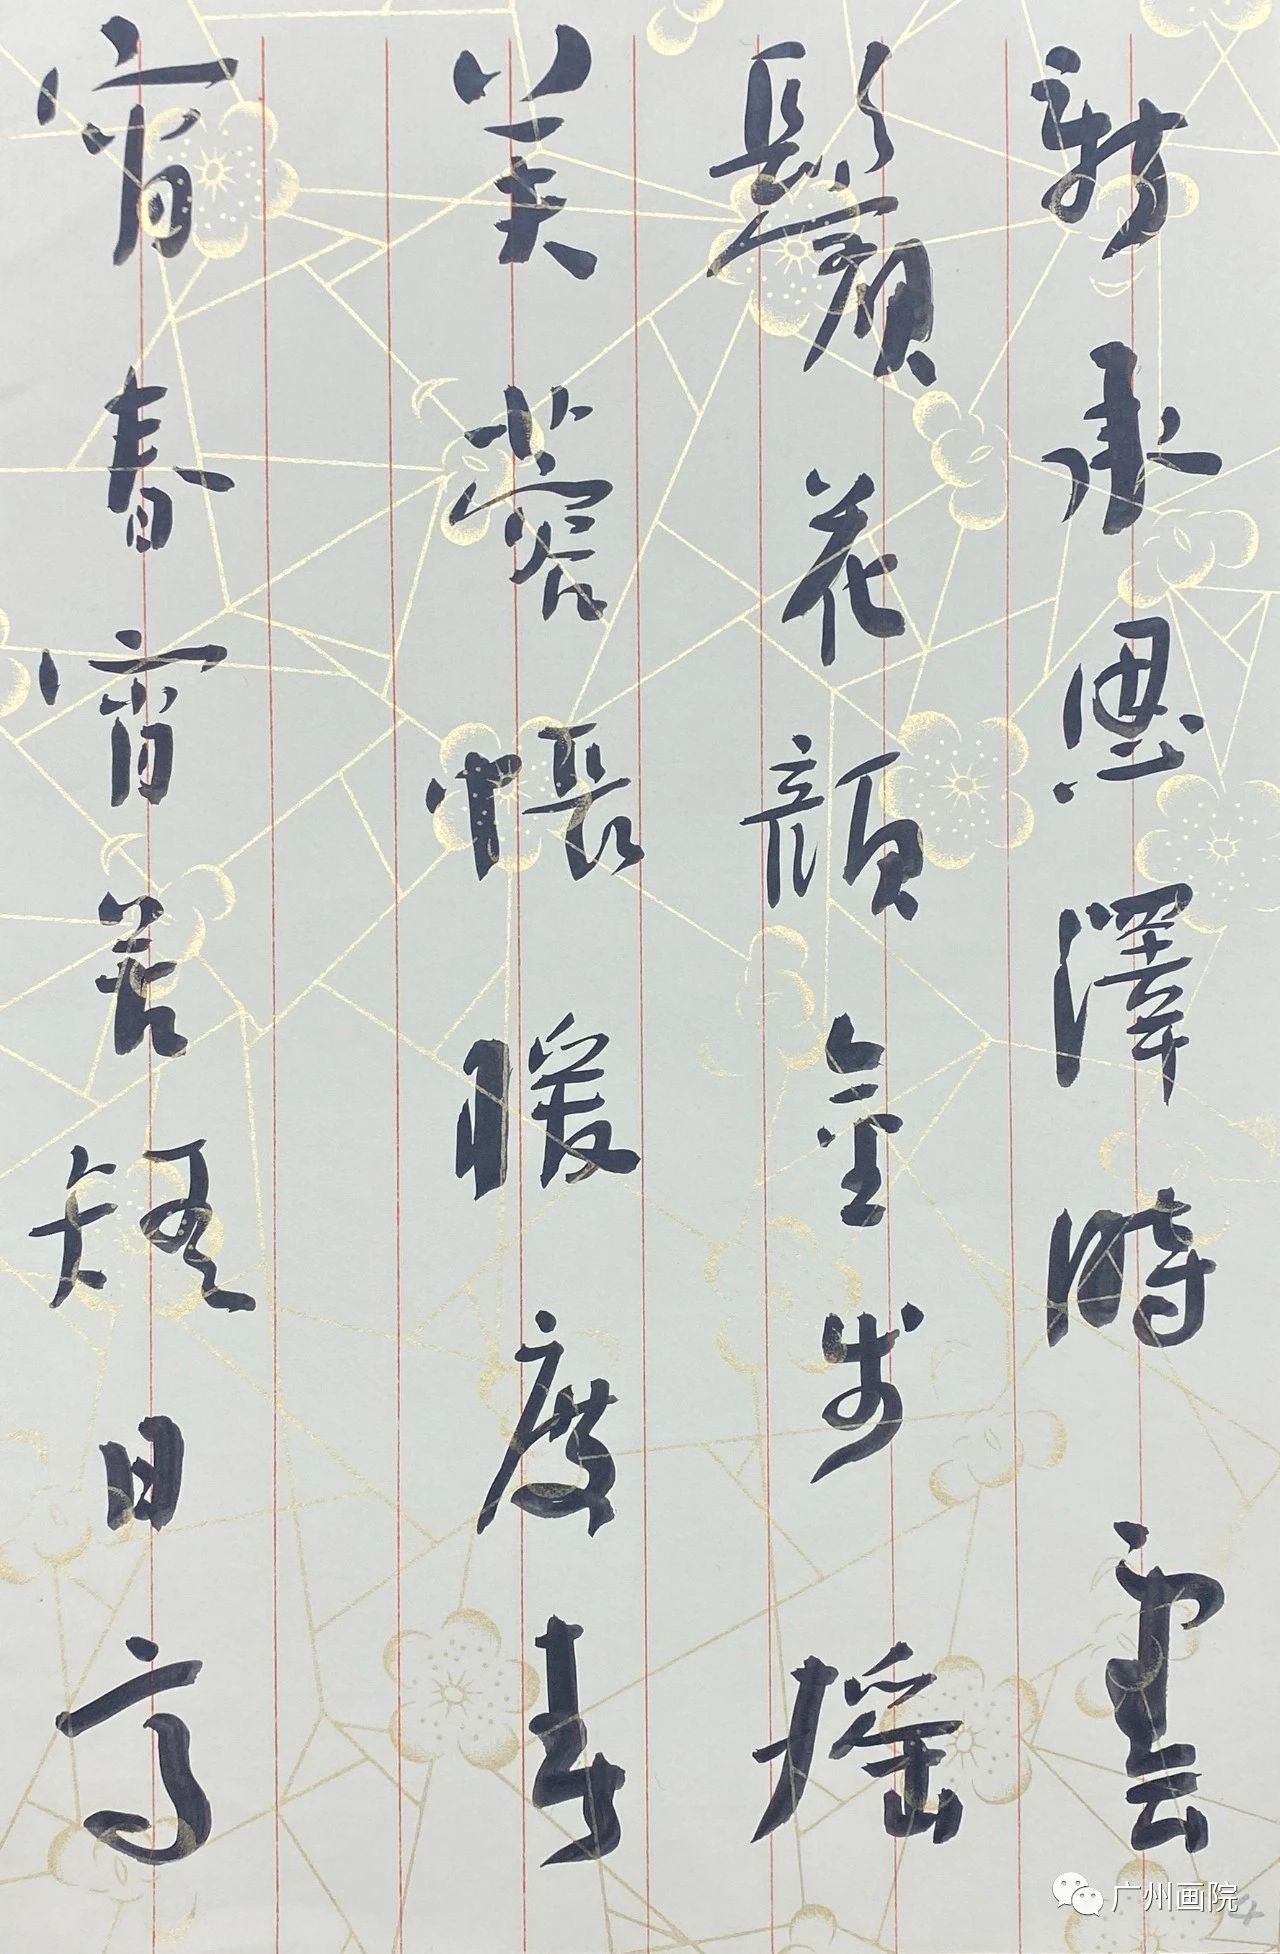 新承恩澤時雲
鬢花顏金步搖
芙蓉帳暖度春
宵春宵苦短日高
广州画院
4